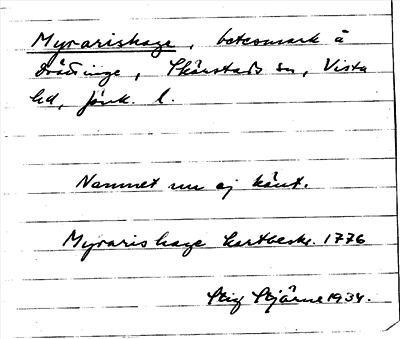 Myrarishage, betesmark å
Drättinge, Skärstads sn, Vista
hd, Jönk. l.
Namnet nu ej känt.
Myraris hage kartbeskr. 1776
Stig Stjärne 1934.